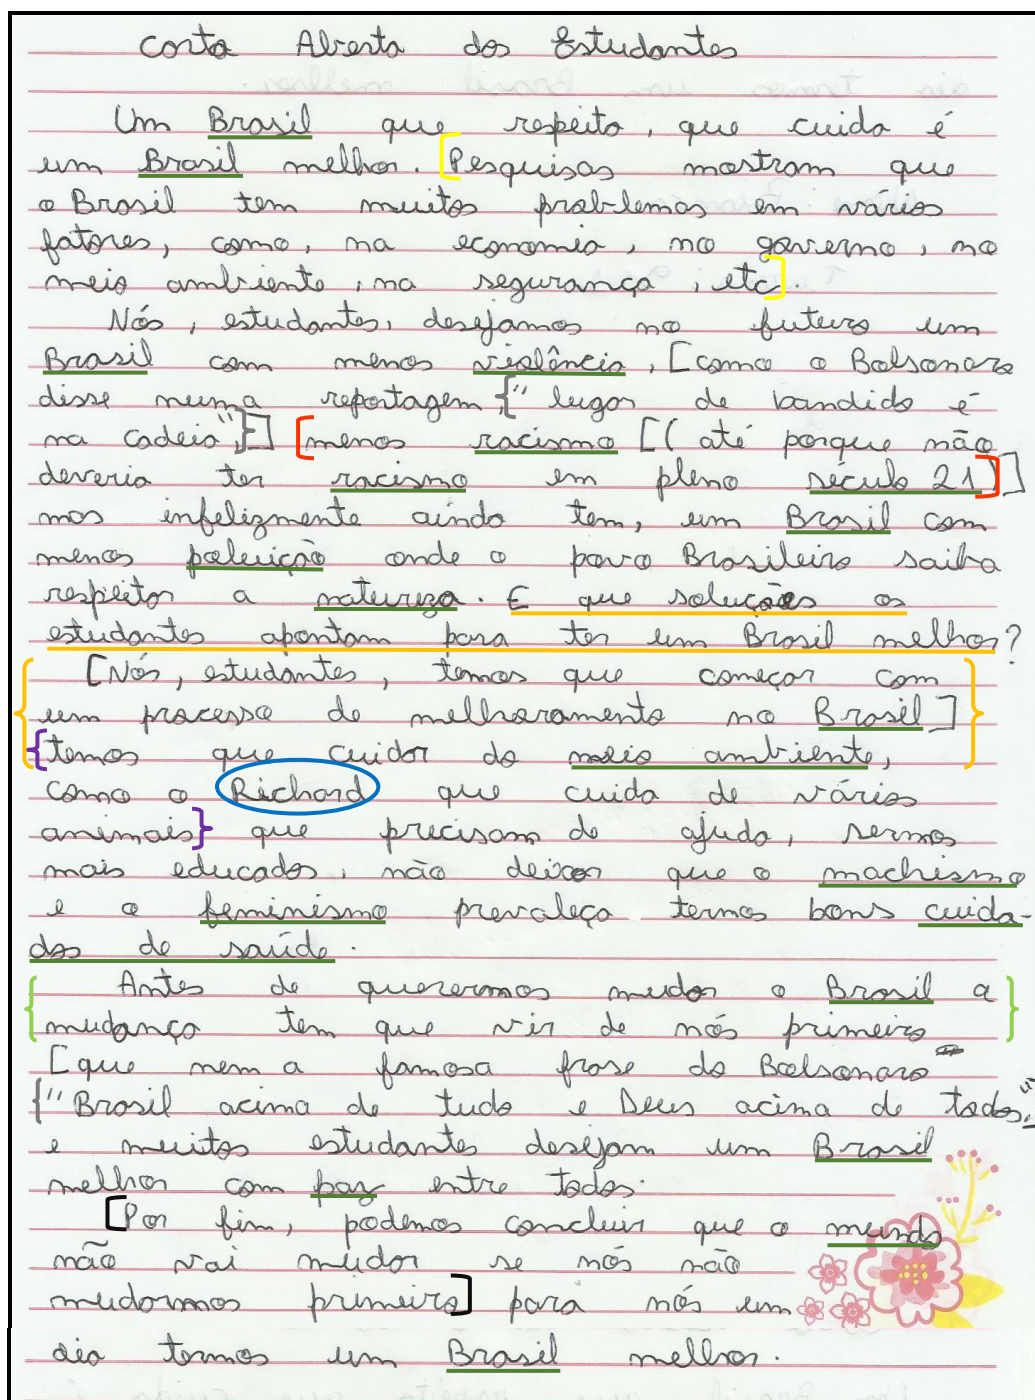 Carta Aberta dos Estudantes
Um Brasil que respeita, que cuida é
um Brasil melhor. [Pesquisas mostram que
o Brasil tem muitos problemas em vários
fatores, como, na economia, no governo, no
meio ambiente, na segurança, etc].
Nós, estudantes, desejamos no futuro um
Brasil com menos violência, [como o Bolsonaro
disse numa reportagem,{" lugar de bandido é
na cadeia",}] [menos racismo [( até porque não
deveria ter racismo em pleno século 21)]]
mas infelizmente ainda tem, um Brasil com
menos poluição onde o povo Brasileiro saiba
respeitar a natureza. E que soluções os
estudantes apontam para ter um Brasil melhor?
{[Nós, estudantes, temos que começar com
um processo de melhoramento no Brasil]
{temos que cuidar do meio ambiente,}
como o Richard que cuida de vários
animais} que precisam de ajuda, sermos
mais educados, não deixar que o machismo
e o feminismo prevaleça termos bons cuida-
dos de saúde.
{Antes de querermos mudar o Brasil a}
mudança tem que vir de nós primeiro
[que nem a famosa frase do Bolsonaro
{"Brasil acima de tudo e Deus acima de todos,"
e muitos estudantes desejam um Brasil
melhor com paz entre todos.
[Por fim, podemos concluir que o mundo
não vai mudar se nós não
mudarmos primeiro] para nós um
dia termos um Brasil melhor.